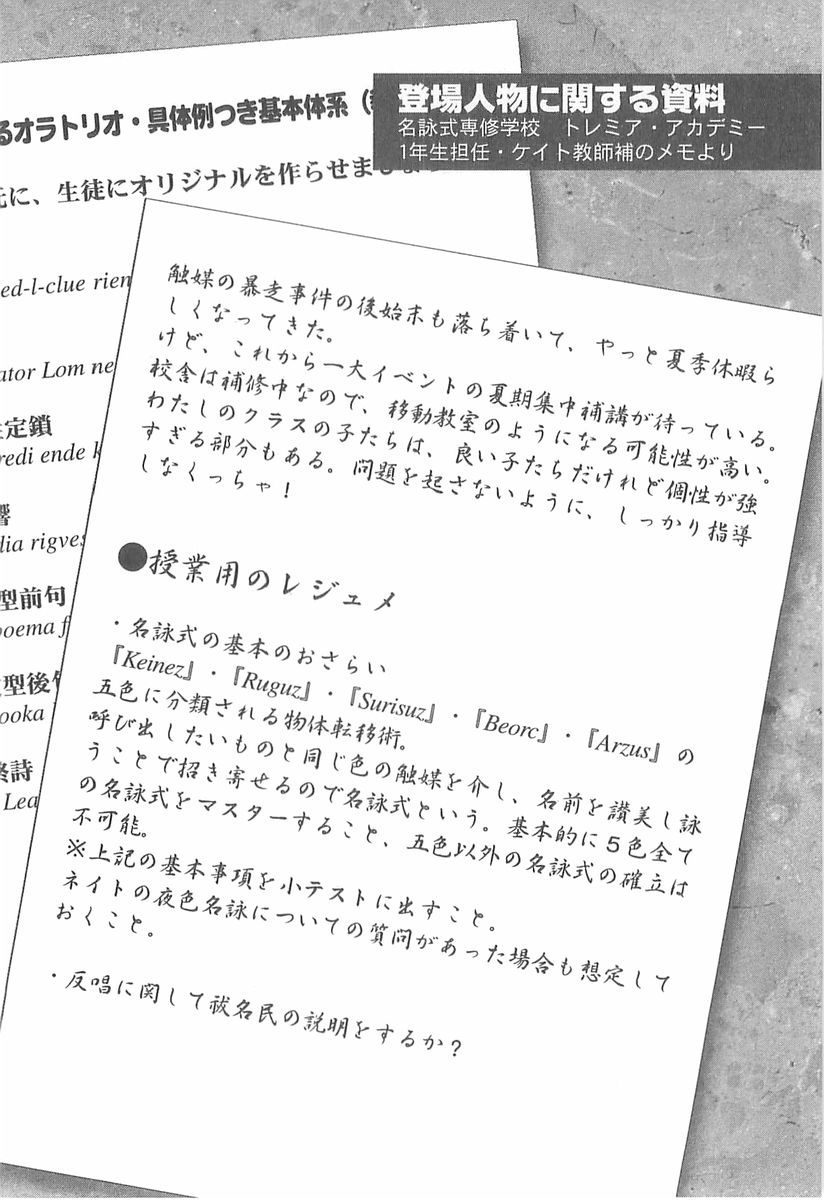 登場人物に関する資料
名詠式専修学校　トレミア・アカデミー
1年生担任・ケイト教師補のメモより
るオラトリオ・具体例つき基本体系（
元に、生徒にオリジナルを作らせまし
ed-l-clue rien
ator Lom ne
定鎖
redi ende k
響
dia rigves
型前句
poema f
型後句
ooka
終詩
Lea
触媒の暴走事件の後始末も落ち着いて、やっと夏季休暇ら
しくなってきた。
けど、これから一大イベントの夏期集中補講が待っている。
校舎は補修中なので、移動教室のようになる可能性が高い。
わたしのクラスの子たちは、良い子たちだけれど個性が強
すぎる部分もある。問題を起さないように、しっかり指導
しなくっちゃ！
●授業用のレジュメ
・名詠式の基本のおさらい
『Keinez』・『Ruguz』・『Surisuz』・『Beorc』・『Arzus』の
五色に分類される物体転移術。
呼び出したいものと同じ色の触媒を介し、名前を讃美し詠
うことで招き寄せるので名詠式という。基本的に5色全て
の名詠式をマスターすること、五色以外の名詠式の確立は
不可能。
※上記の基本事項を小テストに出すこと。
ネイトの夜色名詠についての質問があった場合も想定して
おくこと。
・反唱に関して祓名民の説明をするか？